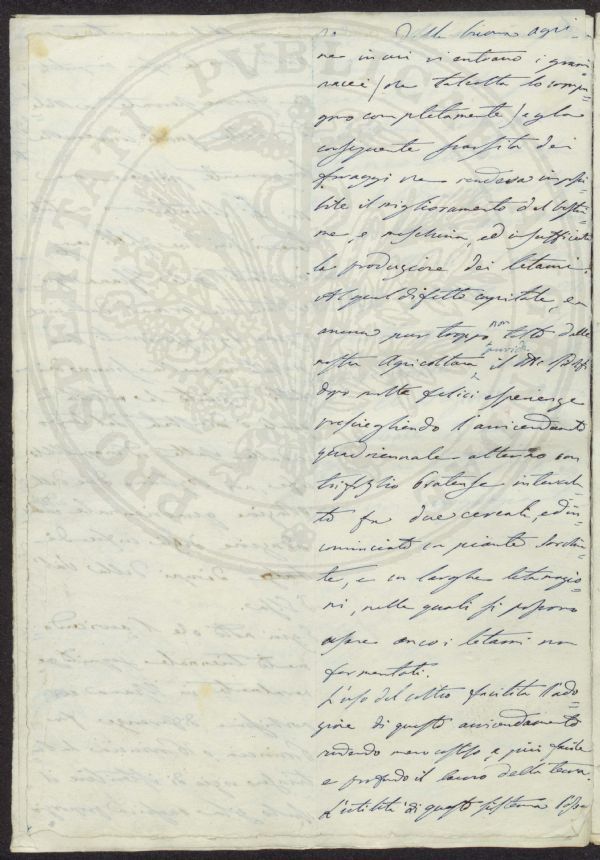 della buona agri=
ne in cui vi entrano i grami
nacei / che talvolta lo compo
gono completamente / e gla
conseguente scarsità dei
foraggi che rendeva impossi
bile il miglioramento del bestia
me, e meschina, ed insufficiente
la produzione dei letami.
Al qual difetto capitale, e
ancora pur troppo non tolto dalla
nostra Agricoltura, il
dopo molte felici esperienze
prescegliendo l'avvicendamento
quadriennale alterno con
trifoglio Pratense interca=
to fra due cereali, ed in=
cominciato con piante sarchia=
te, e con larghe letamazio=
ni, nelle quali si possono
usare anco i letami non
fermentati.
L'uso del coltro facilita l'ado=
zione di questo avvicendamento
rendendo meno costoso, e più facile
e profondo il lavoro della terra.
L'utilità di questo sistema
PROSPERITATI PUBLICAE